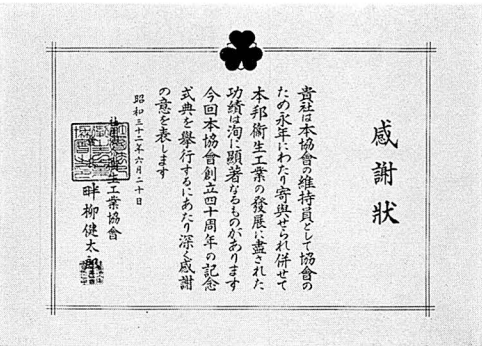 感謝狀
貴社は本協會の維持員として協會の
ため永年にわたり寄與せられ併せて
本邦衛生工業の發展に盡された
功績は洵に顯著なるものがあります
今回本協會創立四十周年の記念
式典を擧行するにあたり深く感謝
の意を表します
昭和三十二年六月二十日
生工業協會
畔柳健太郎